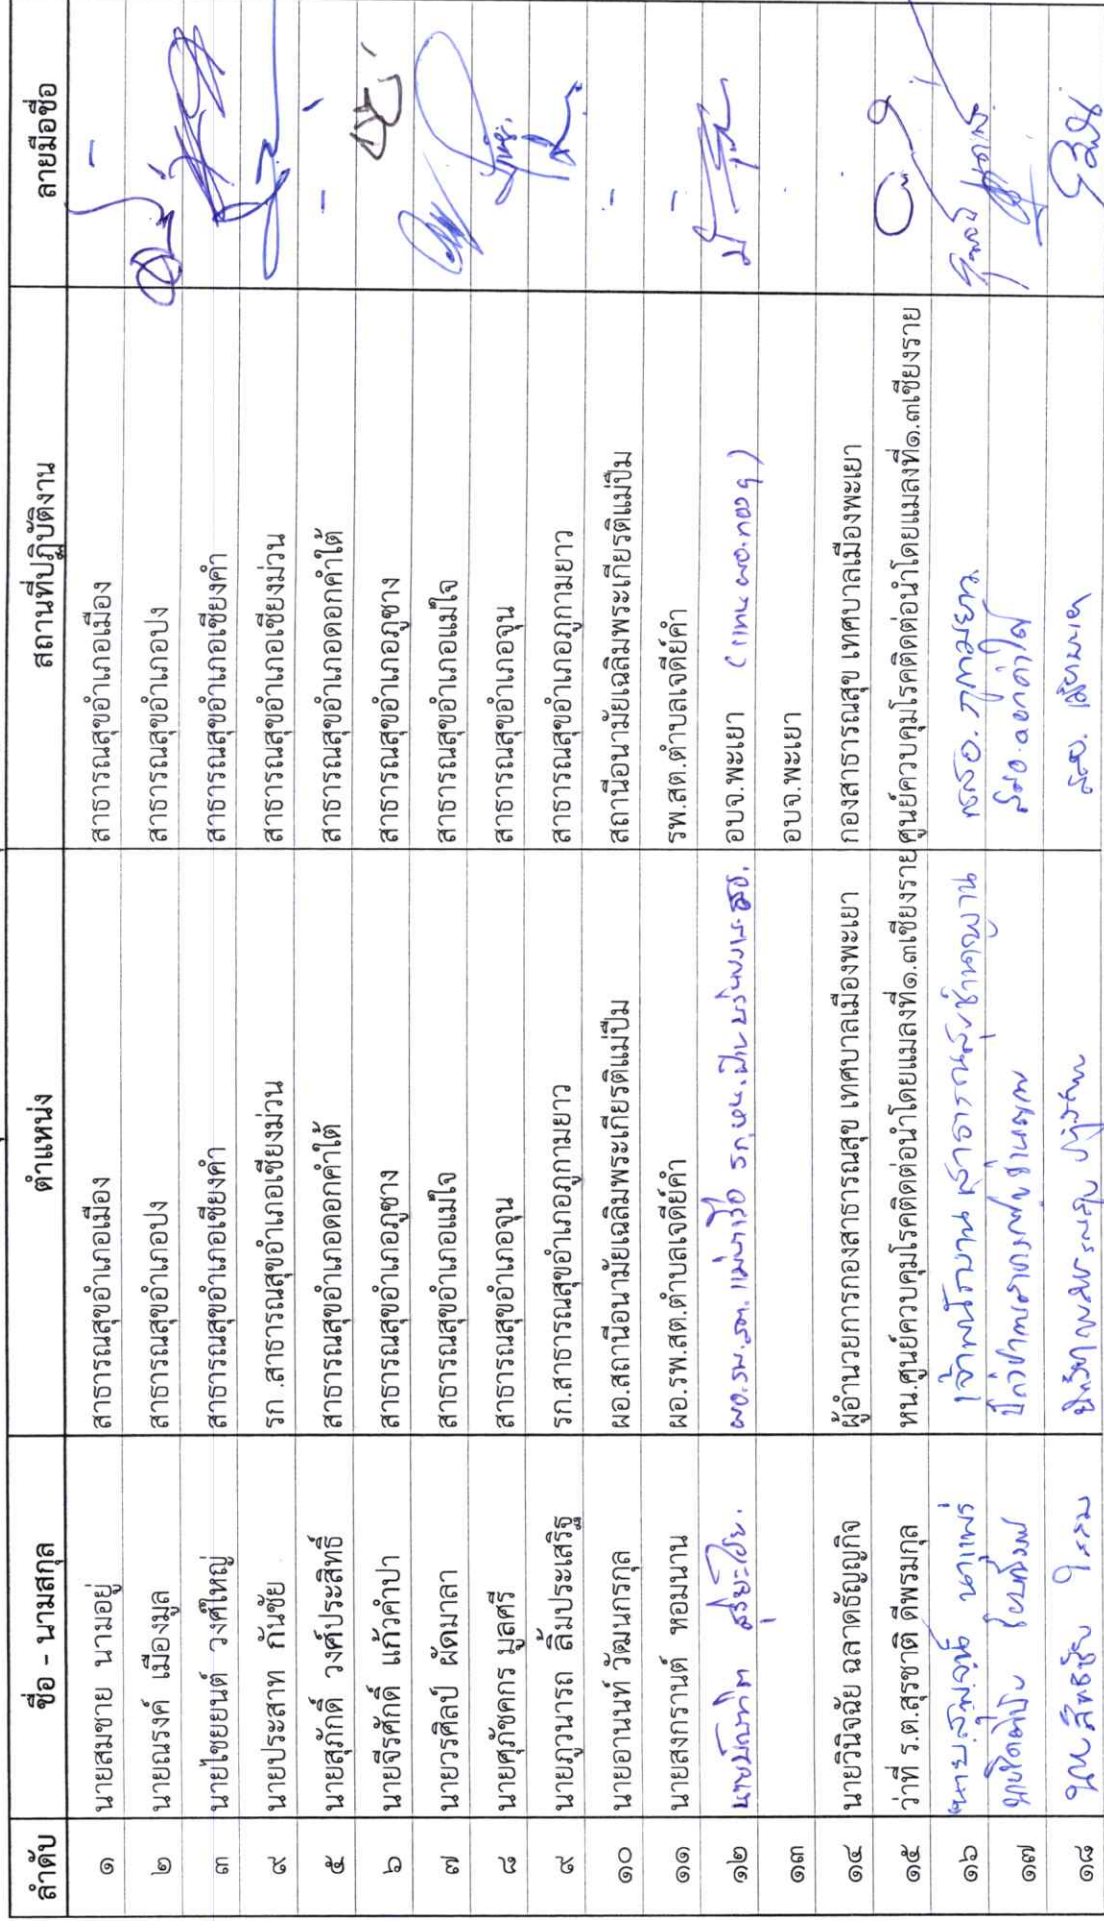 ลำดับ ชื่อ - นามสกุล ตำแหน่ง สถานที่ปฏิบัติงาน ลายมือชื่อ
๑ นายสมชาย นามอยู่ สาธารณสุขอำเภอเมือง สาธารณสุขอำเภอเมือง -
๒ นายณรงค์ เมืองมูล สาธารณสุขอำเภอปง สาธารณสุขอำเภอปง
๓ นายไชยยนต์ วงศ์ใหญ่ สาธารณสุขอำเภอเชียงคำ สาธารณสุขอำเภอเชียงคำ
๔ นายประสาท กันชัย รก .สาธารณสุขอำเภอเชียงม่วน สาธารณสุขอำเภอเชียงม่วน
๕ นายสุภักดิ์ วงศ์ประสิทธิ์ สาธารณสุขอำเภอดอกคำใต้ สาธารณสุขอำเภอดอกคำใต้ -
๖ นายจีรศักดิ์ แก้วคำปา สาธารณสุขอำเภอภูซาง สาธารณสุขอำเภอภูซาง
๗ นายวรศิลป์ ผัดมาลา สาธารณสุขอำเภอแม่ใจ สาธารณสุขอำเภอแม่ใจ
๘ นายศุภัชคกร มูลศรี สาธารณสุขอำเภอจุน สาธารณสุขอำเภอจุน
๙ นายภูวนารถ ลิ้มประเสริฐ รก.สาธารณสุขอำเภอภูกามยาว สาธารณสุขอำเภอภูกามยาว
๑๐ นายอานนท์ วัฒนกรกุล ผอ.สถานีอนามัยเฉลิมพระเกียรติแม่ปืม สถานีอนามัยเฉลิมพระเกียรติแม่ปืม -
๑๑ นายสงกรานต์ หอมนาน ผอ.รพ.สต.ตำบลเจดีย์คำ รพ.สต.ตำบลเจดีย์คำ -
๑๒ ผอ.รพ.สต. อบจ.พะเยา (แทน ผอ.กองฯ)
๑๓ อบจ.พะเยา
๑๔ นายวินิจฉัย ฉลาดธัญญกิจ ผู้อำนวยการกองสาธารณสุข เทศบาลเมืองพะเยา กองสาธารณสุข เทศบาลเมืองพะเยา
๑๕ ว่าที่ ร.ต.สุรชาติ ดีพรมกุล หน.ศูนย์ควบคุมโรคติดต่อนำโดยแมลงที่๑.๓เชียงราย ศูนย์ควบคุมโรคติดต่อนำโดยแมลงที่๑.๓เชียงราย
๑๖ นาแพร่ เจ้าพนักงานสาธารณสุขชำนาญงาน สสอ.ภูกามยาว
๑๗ นักวิชาการสาธารณสุขชำนาญการ สสอ.ดอกคำใต้
๑๘ นายสิทธิชัย